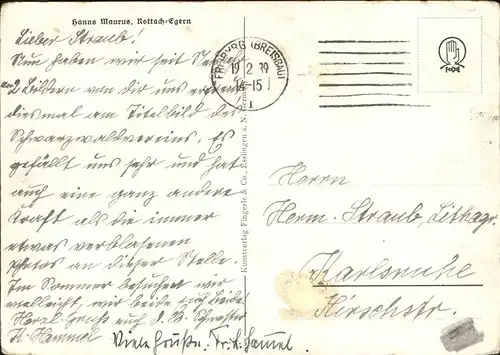 Hanns Maurus, Rottach-Egern
Lieber Straub!
Nun haben wir seit
2 Bildern von Dir uns
diesmal am Titelbild des
Schwarzwaldvereins. Es
gefällt uns sehr und hat
auch eine ganz andere
Kraft als die immer
etwas verblasenen
Photos an dieser Stelle.
Im Sommer besuchen wir
vielleicht, wir beide Beide.
Herzl. Gruss auch d. Schwester
K. Hammel
Viele Grüße.
FREIBURG (BREISGAU)
19.2.39
14-15
Kunstverlag Fingerle & Co., Esslingen a. N.
Herrn
Herm. Straub, Lithogr.
Karlsruhe
Hirschstr.